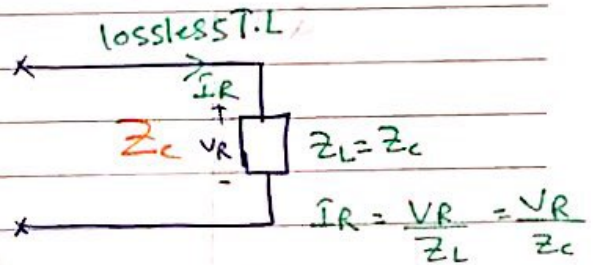 lossless T.L
IR
+
Zc VR ZL = Zc
-
IR = VR/ZL = VR/Zc